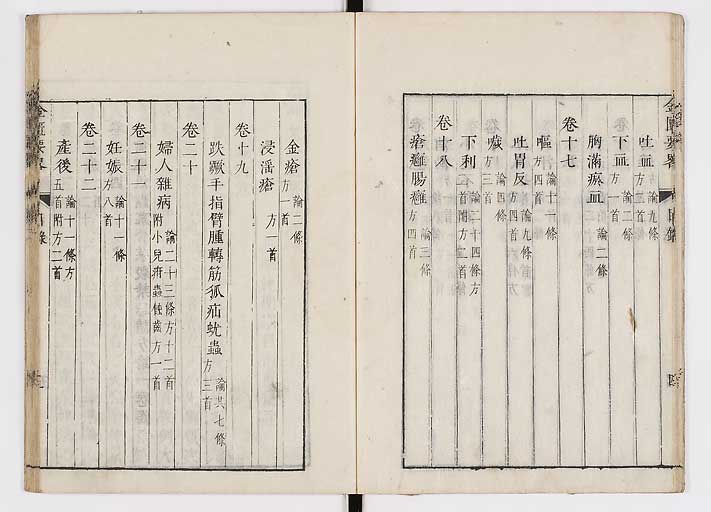 吐血 論九條 方五首
下血 論二條 方一首
胸滿瘀血 論二條
卷十七
嘔 論十一條 方四首
吐胃反 論九條 方四首
噦 論四條 方三首
下利 論二十四條方 二首附方二首
卷十八
瘡癰腸癰 論三條 方四首
金瘡 論二條 方一首
浸淫瘡 方一首
卷十九
趺蹶手指臂腫轉筋狐疝蚘蟲 論共七條 方三首
卷二十
婦人雜病 論二十三條方十二首 附小兒疳蟲蝕齒方一首
卷二十一
妊娠 論十一條 方八首
卷二十二
產後 論十一條方 五首附方二首